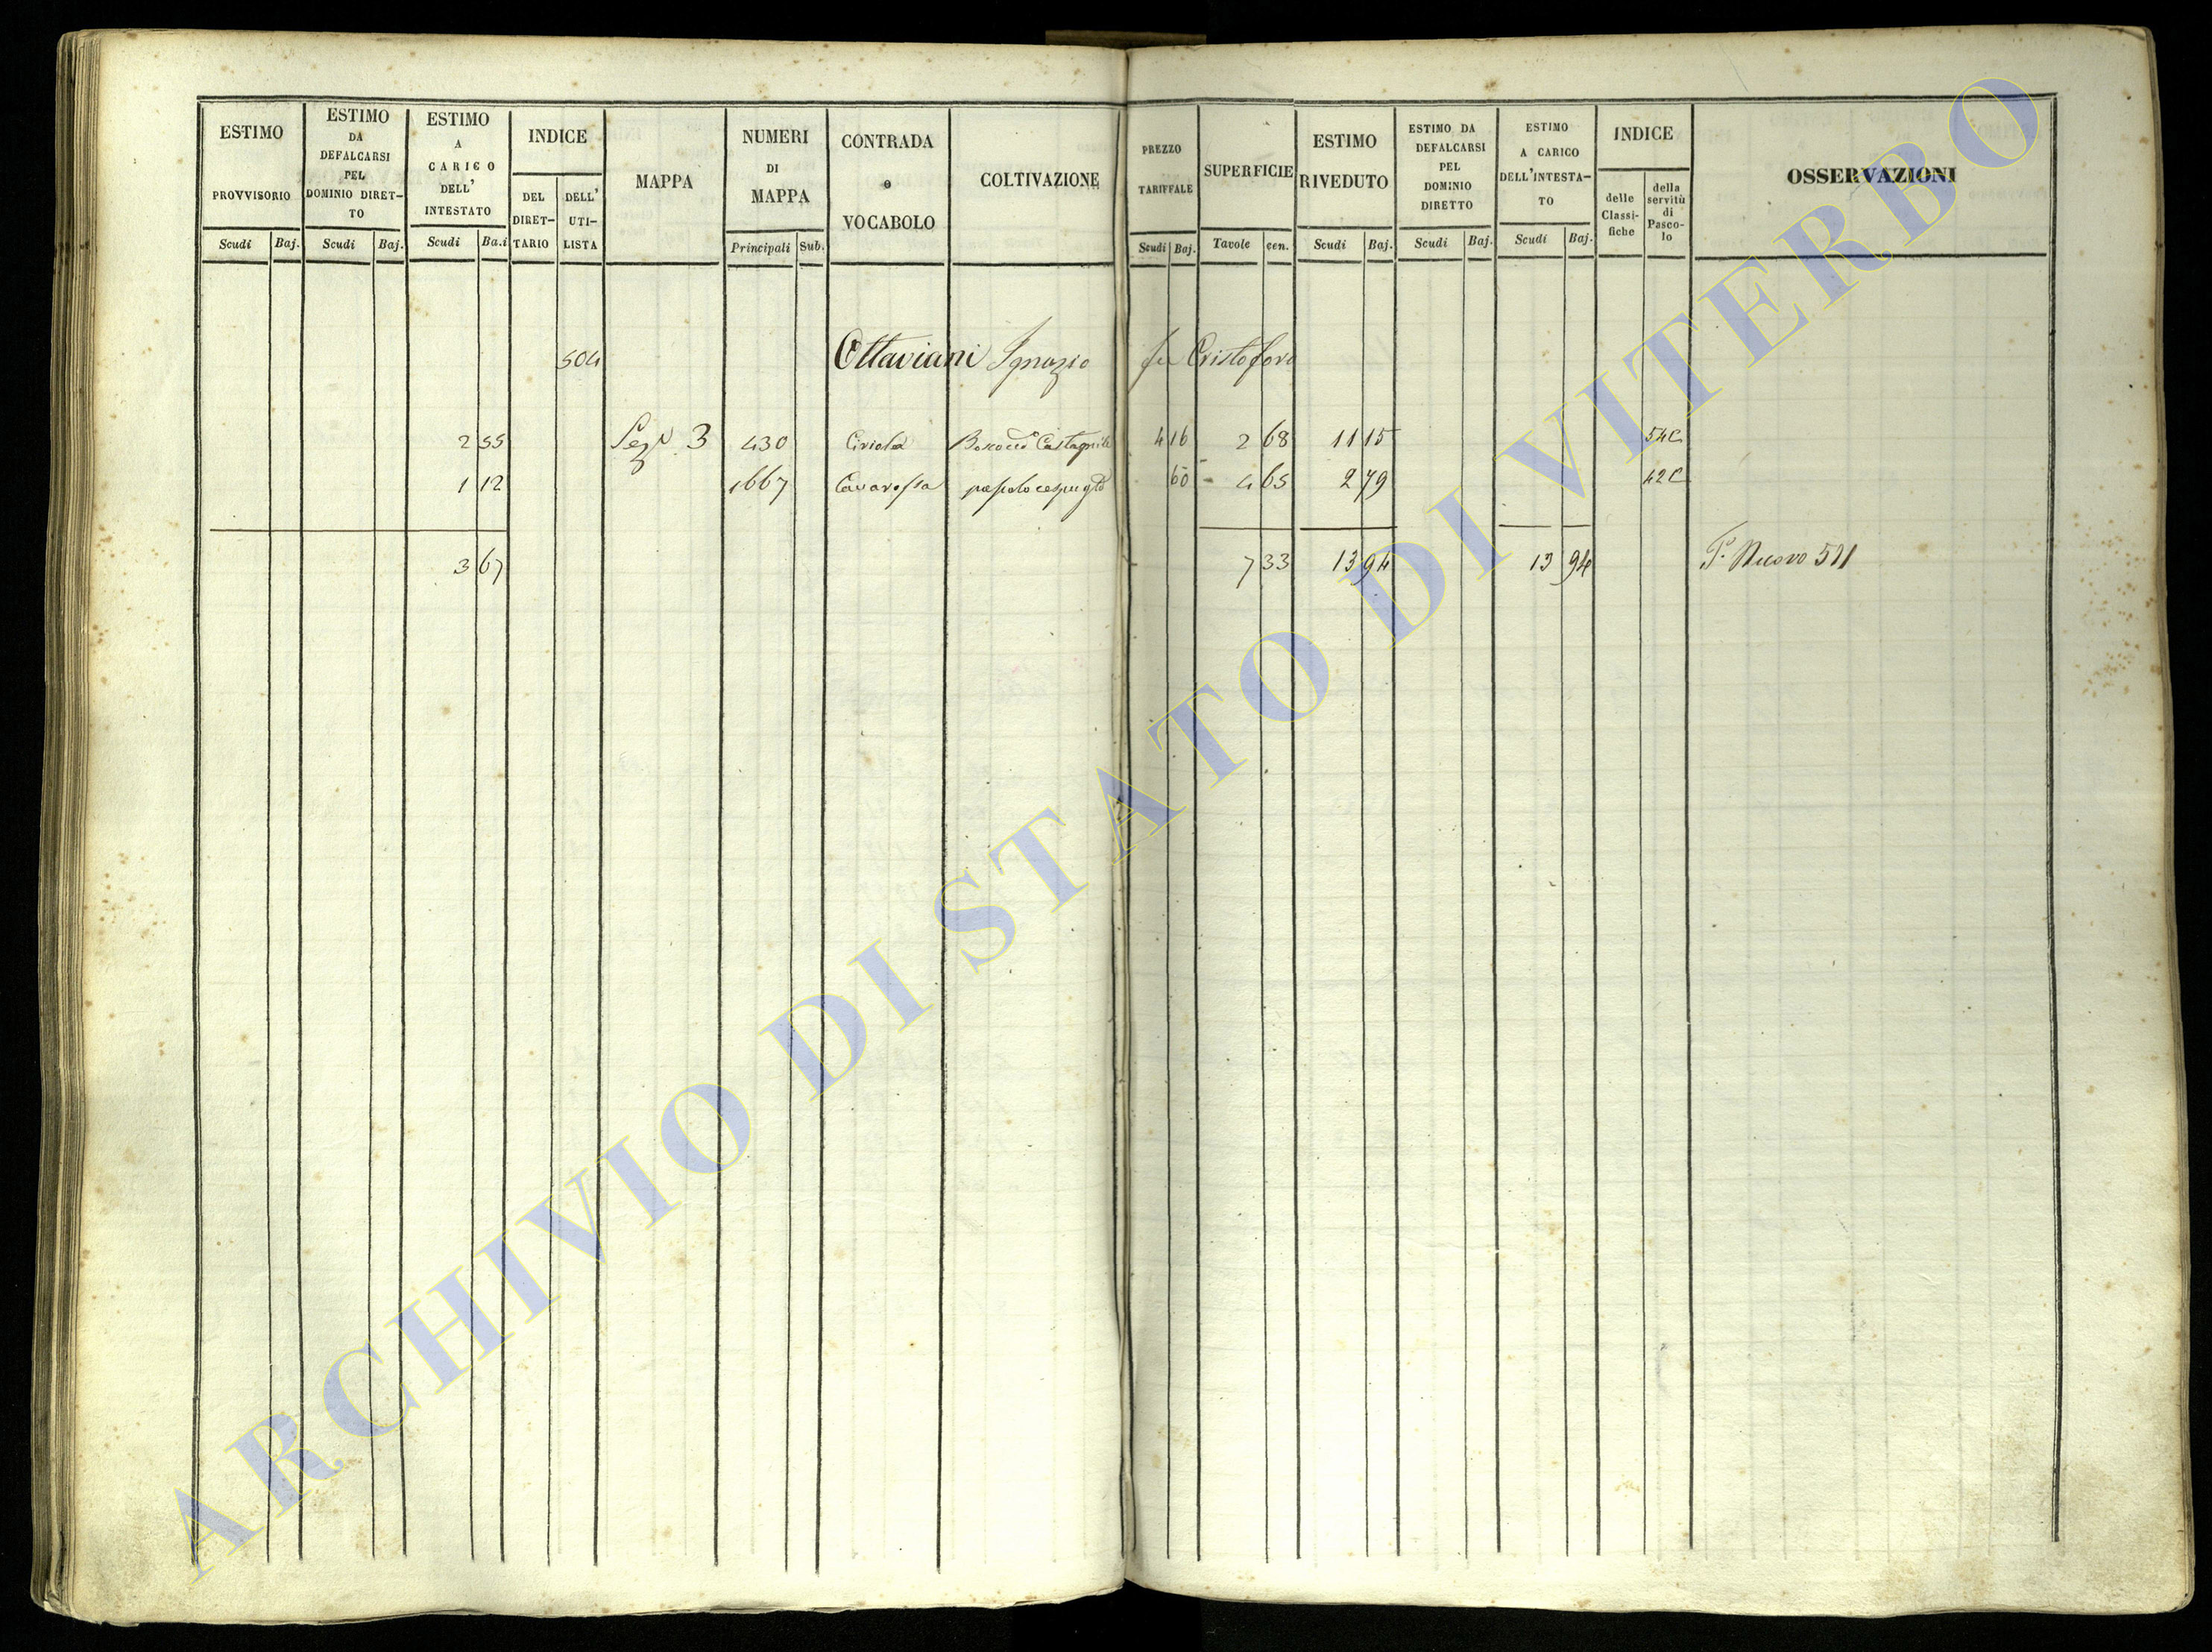 ESTIMO PROVVISORIO
Scudi Baj.
ESTIMO DA DEFALCARSI PEL DOMINIO DIRET-TO
Scudi Baj.
ESTIMO A CARICO DELL' INTESTATO
Scudi Ba.i
INDICE
DEL DIRET-TARIO
DELL' UTI-LISTA
MAPPA
NUMERI DI MAPPA
Principali Sub.
CONTRADA e VOCABOLO
COLTIVAZIONE
PREZZO TARIFFALE
Scudi Baj.
SUPERFICIE
Tavole cen.
ESTIMO RIVEDUTO
Scudi Baj.
ESTIMO DA DEFALCARSI PEL DOMINIO DIRETTO
Scudi Baj.
ESTIMO A CARICO DELL'INTESTA-TO
Scudi Baj.
INDICE
delle Classi-fiche
della servitù di Pasco-lo
OSSERVAZIONI
504 Ottaviani Ignazio fu Cristoforo
2 55 Sez.e 3 430 Ciriola Castagnile 4 16 2 68 11 15 54C
1 12 1667 Cavarossa pascolo cespugto 60 - 4 65 2 79 42C
3 67 7 33 13 94 13 94 Po. Nuovo 511
ARCHIVIO DI STATO DI VITERBO